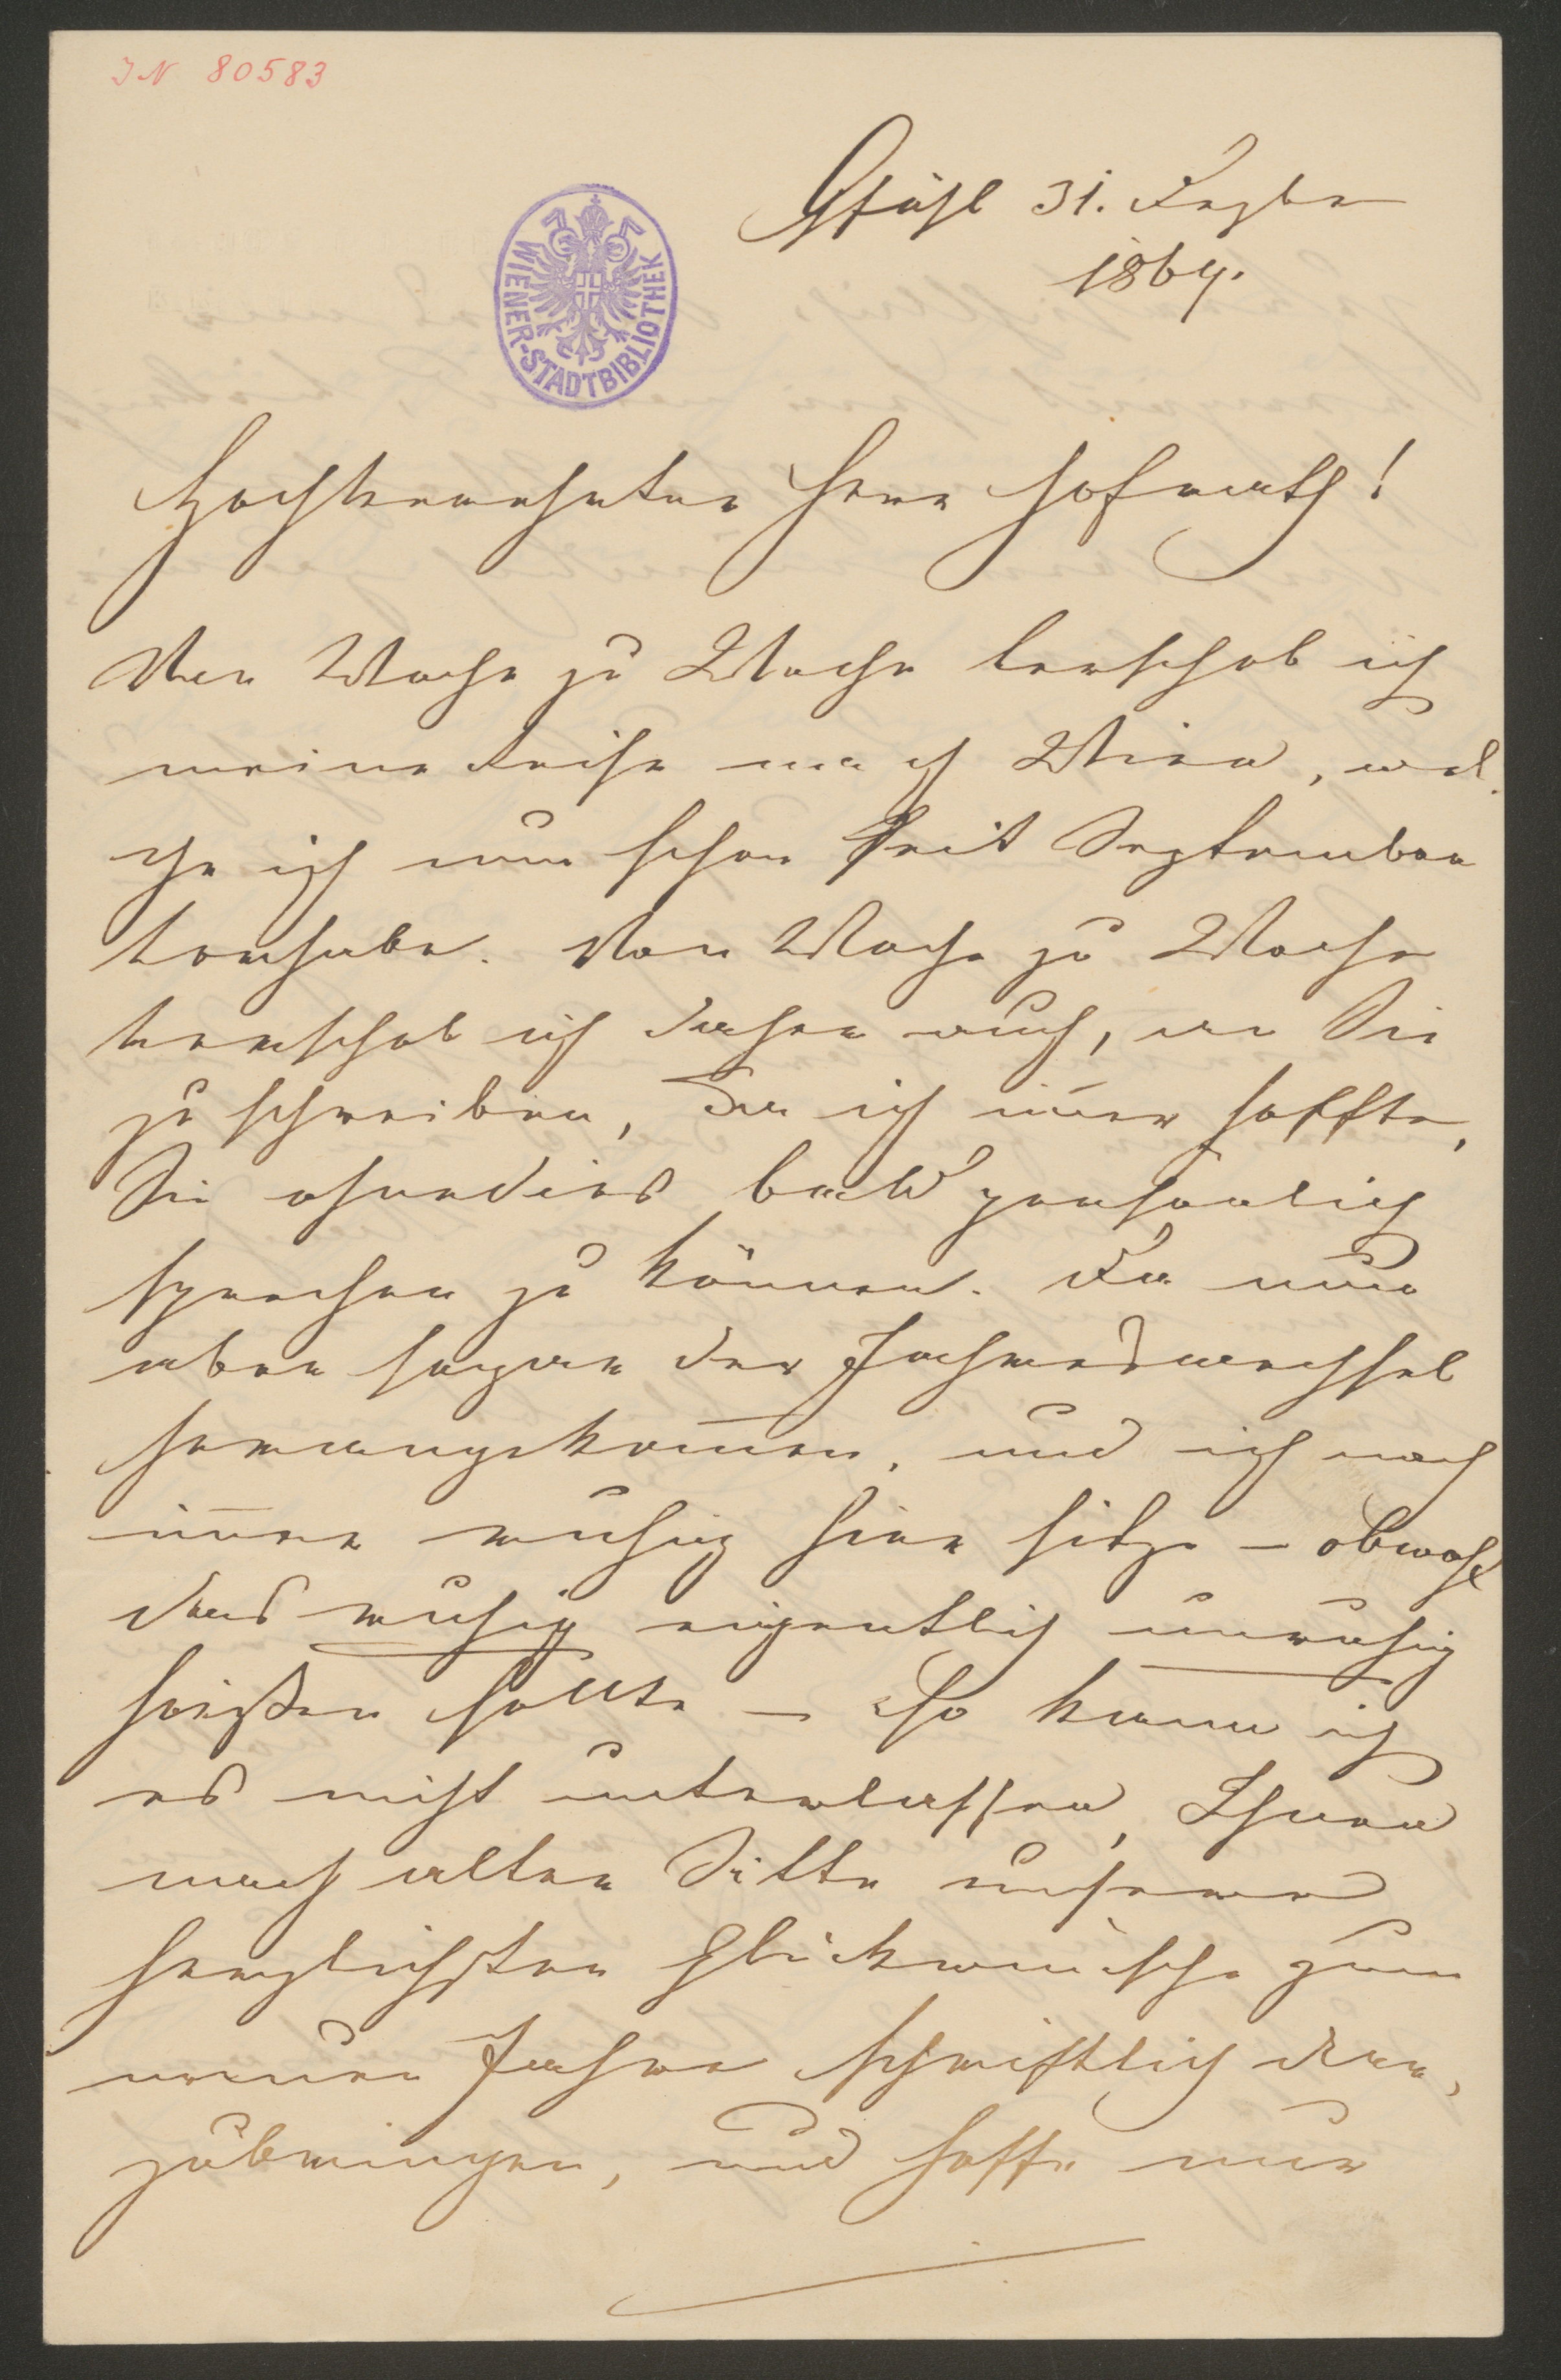 IN 80583
WIENER-STADTBIBLIOTHEK
Gföhl 31. Dezber
1864.
Hochverehrter Herr Hofrath!
Von Woche zu Woche verschob ich
meine Reise nach Wien, wel-
che ich nun schon seit September
vorhabe. Von Woche zu Woche
verschob ich daher auch, an Sie
zu schreiben, da ich im̅er hoffte,
Sie ohnedies bald persönlich
sprechen zu können. Da nun
aber sogar der Jahreswechsel
herangekom̅en, und ich noch
im̅er ruhig hier sitze – obwohl
das ruhig eigentlich unruhig
heißen sollte – so kann ich
es nicht unterlassen, Ihnen
nach alter Sitte unsere
herzlichsten Glückwünsche zum
neuen Jahre schriftlich dar-
zubringen, und hoffe nur